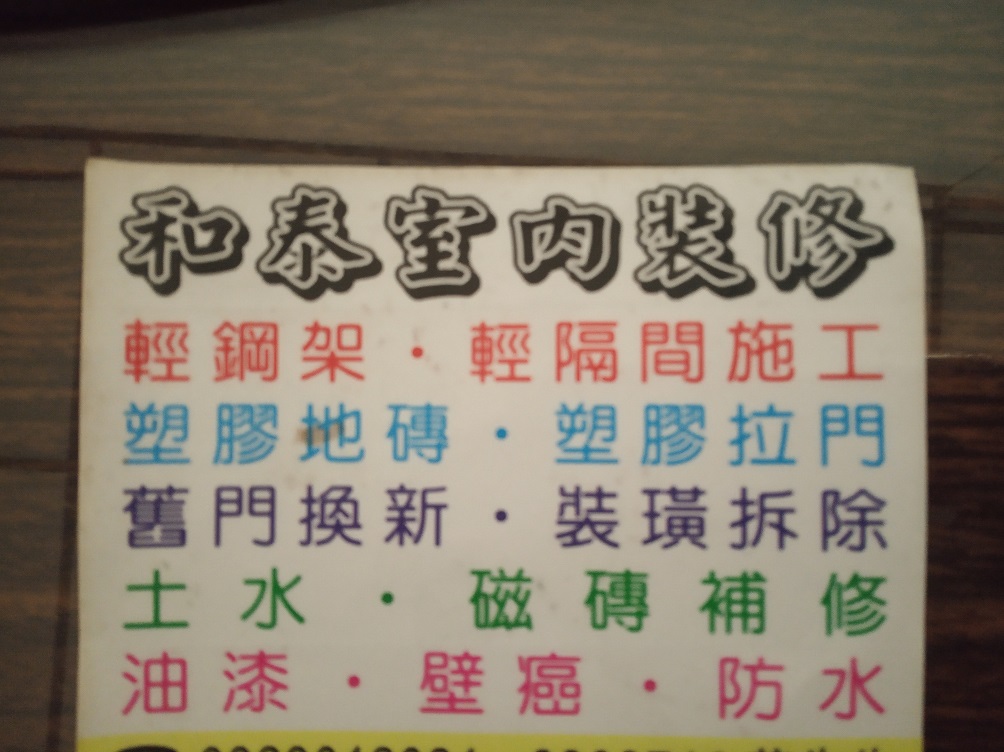 和泰室內裝修
輕鋼架·輕隔間施工
塑膠地磚·塑膠拉門
舊門換新·裝璜拆除
土水·磁磚補修
油漆·壁癌·防水